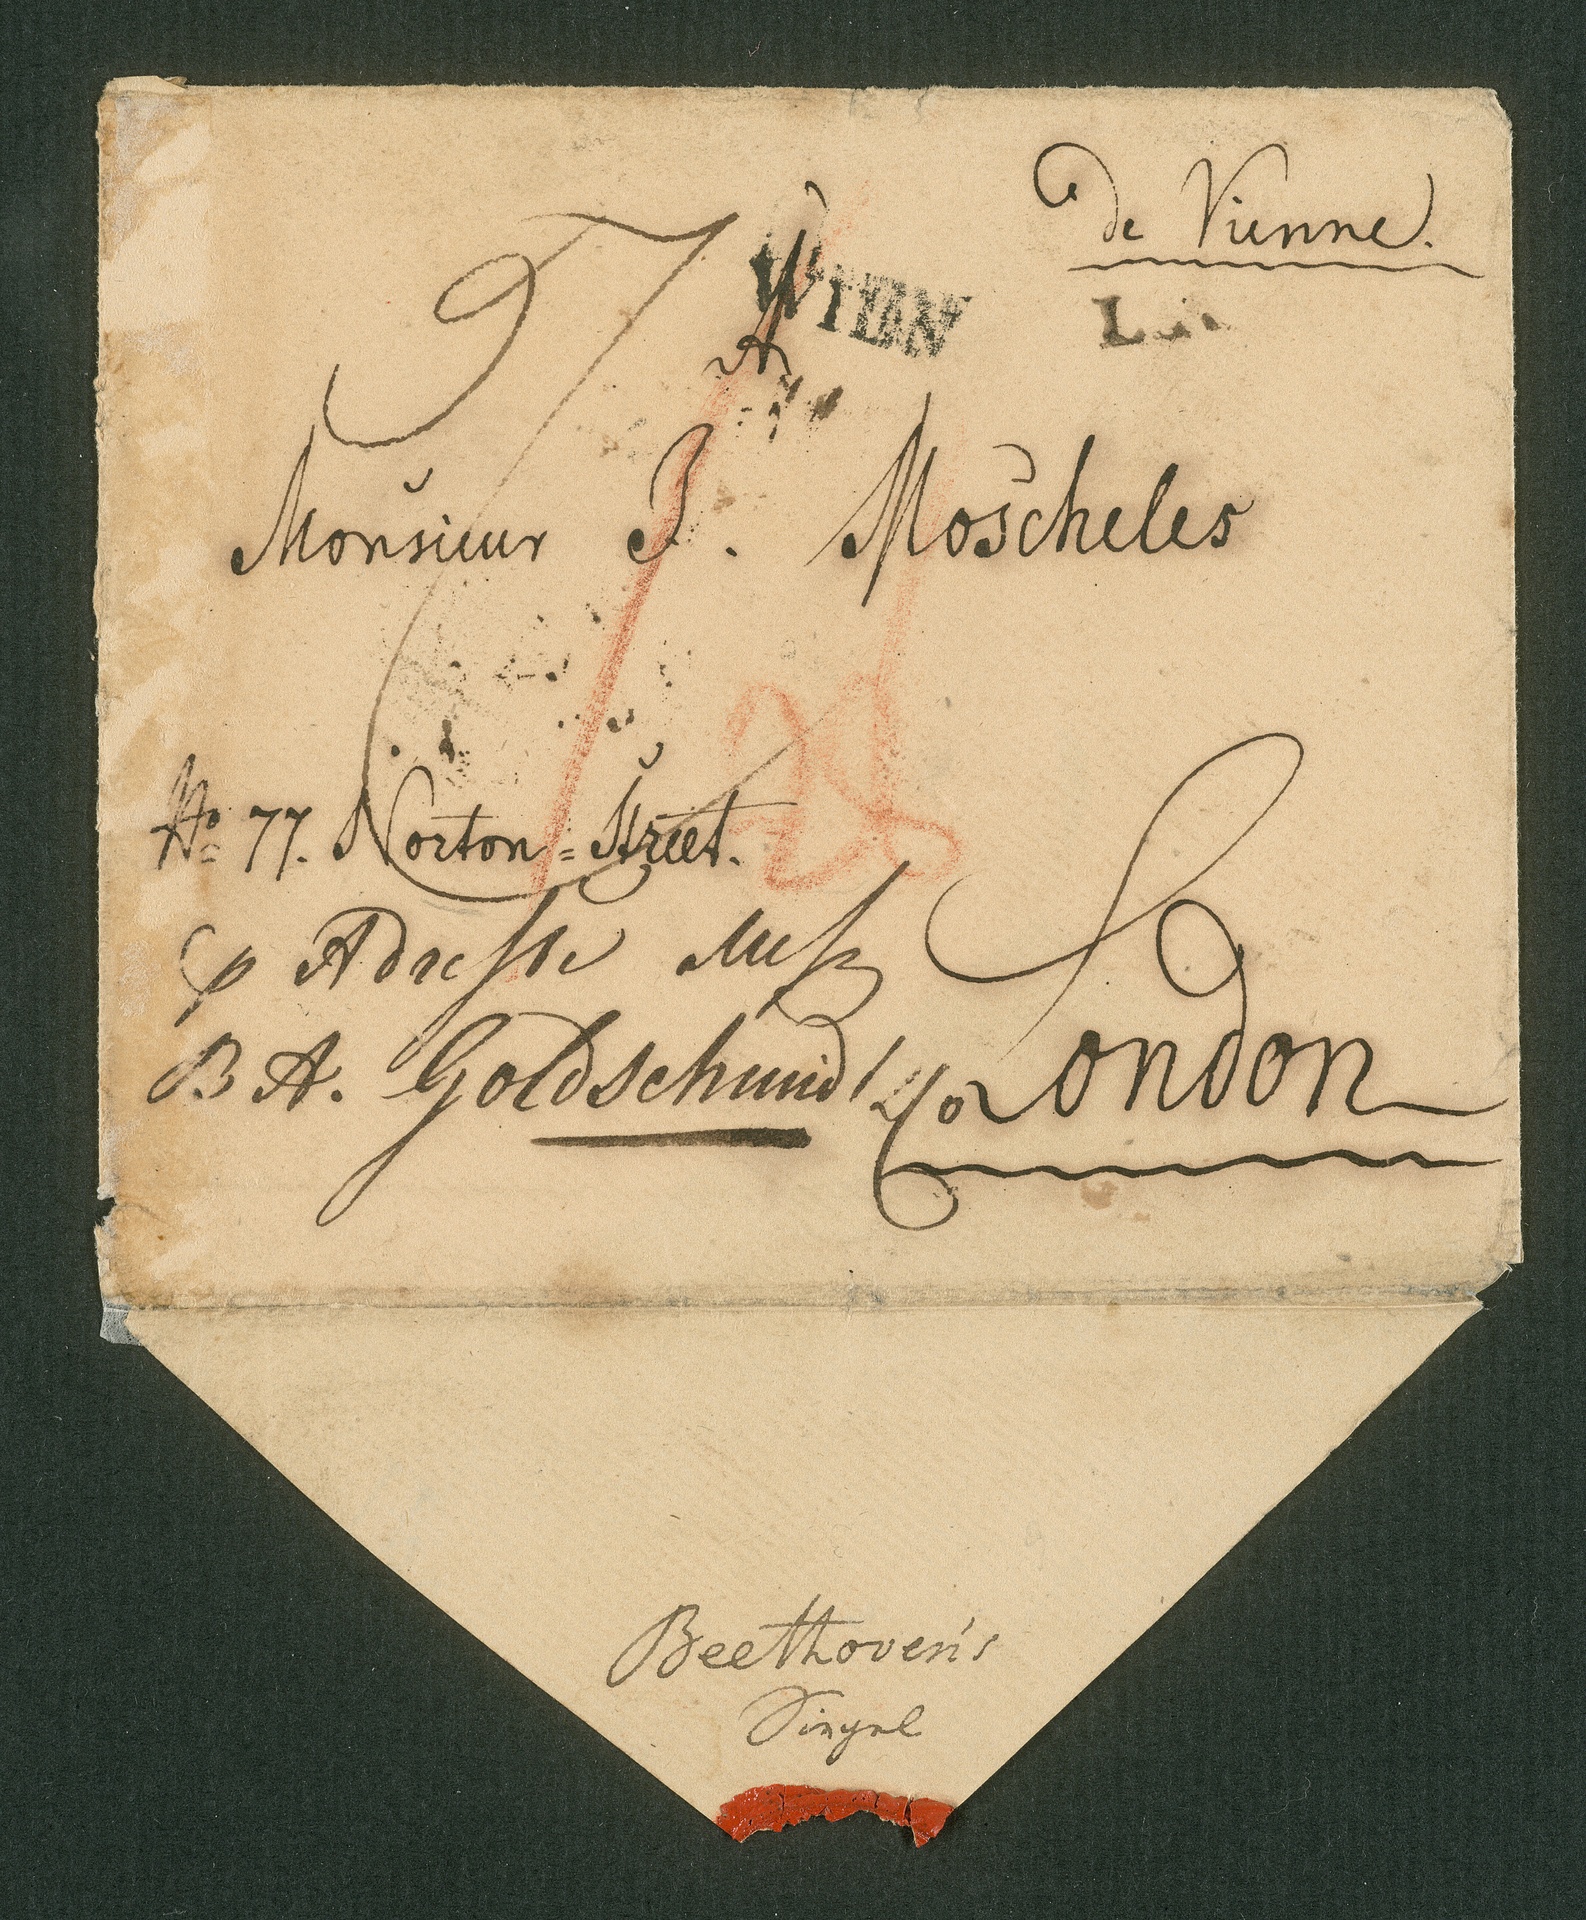 de Vienne.
WIEN
Monsieur I. Moscheles
No 77. Norton=Street.
Adresse
B A. Goldschmidt & Co London
Beethoven's
Singel